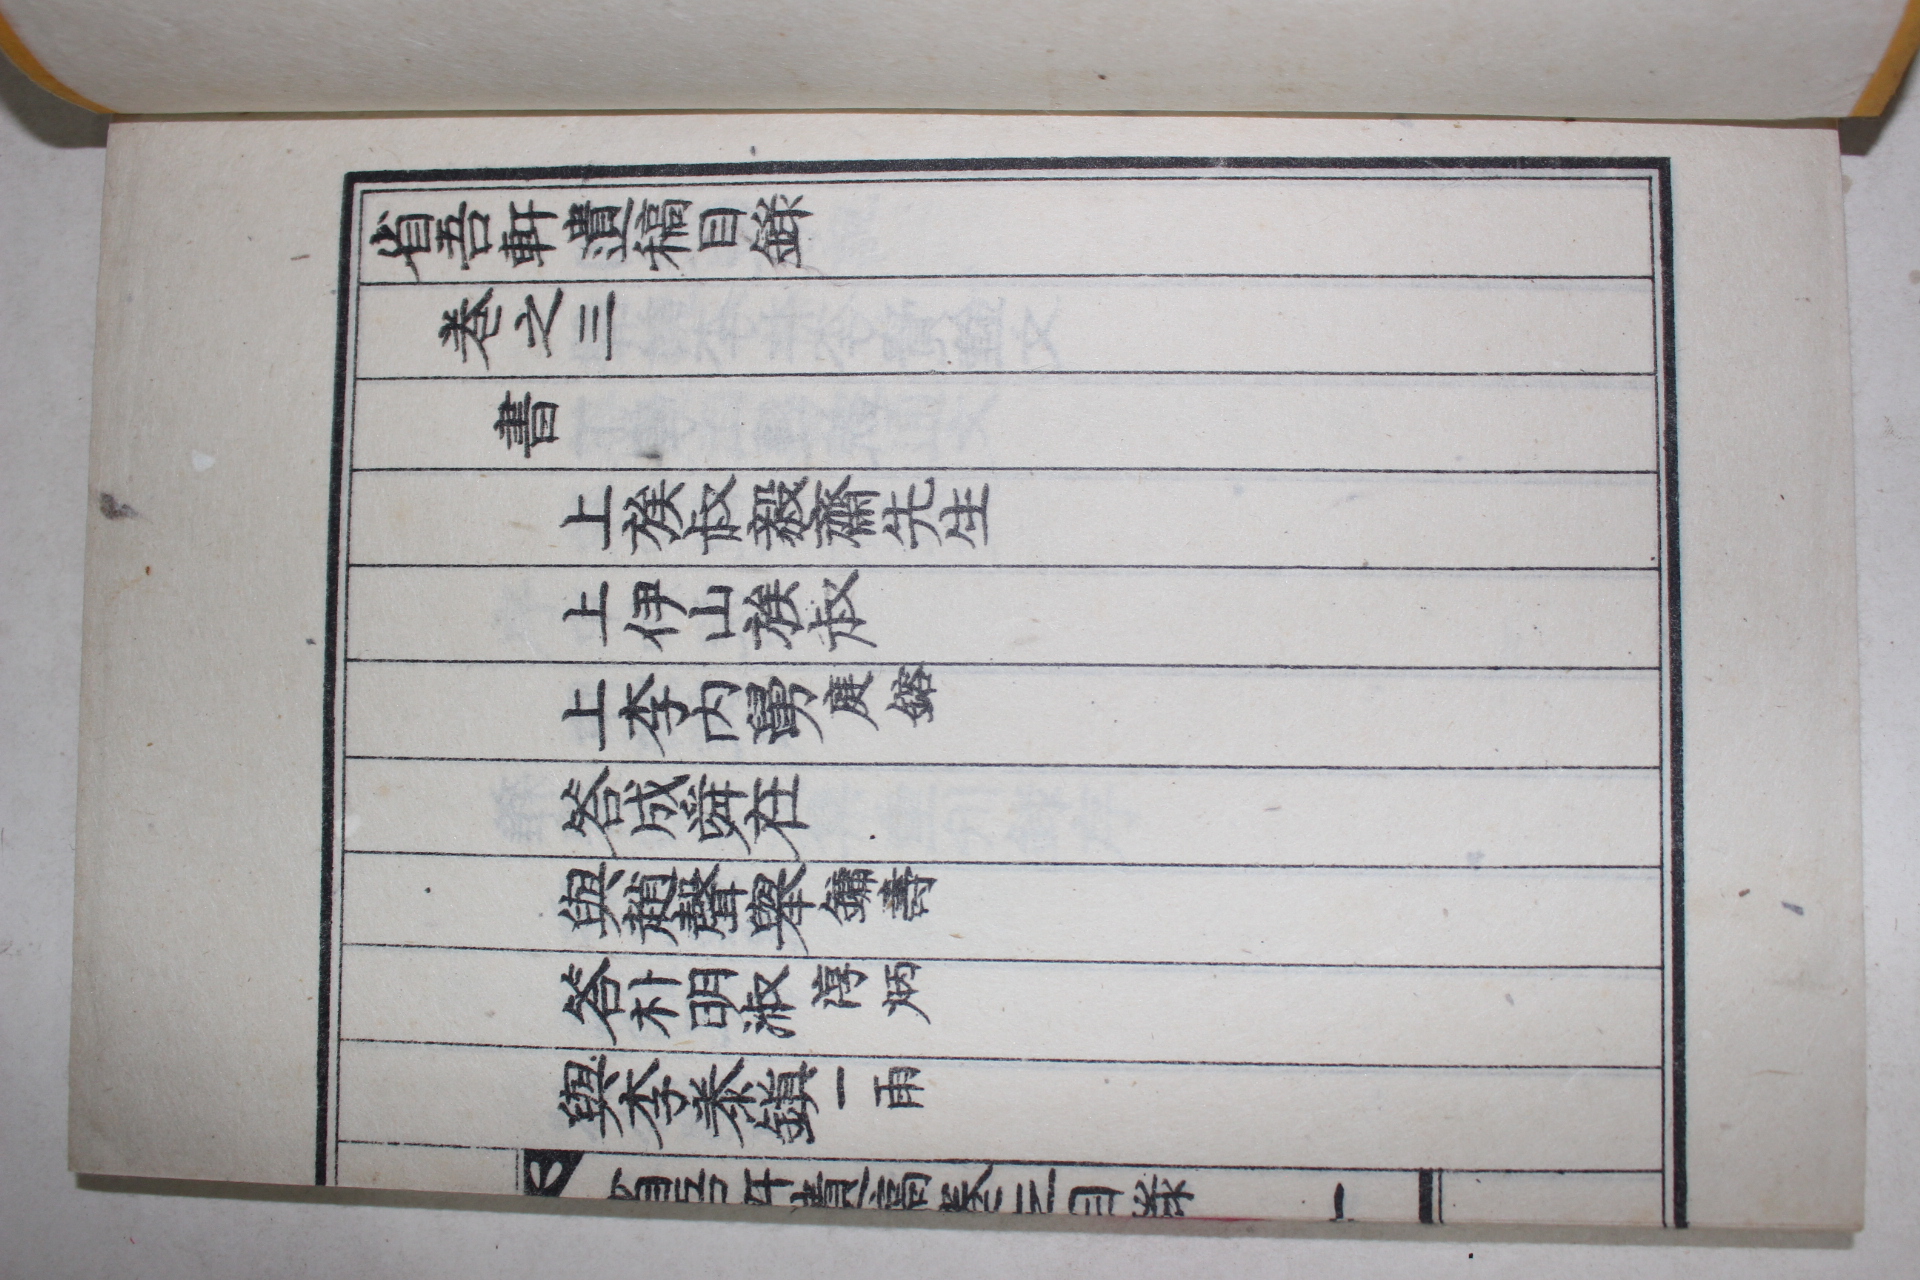 省吾軒遺稿目錄
卷之三
書
上族叔毅齋先生
上伊山族叔
上李內舅慶鎔
答成舜在
與趙聲罄鏞壽
答朴明淑淳炳
與李泰鎭一雨
省吾軒遺稿卷三目錄 一